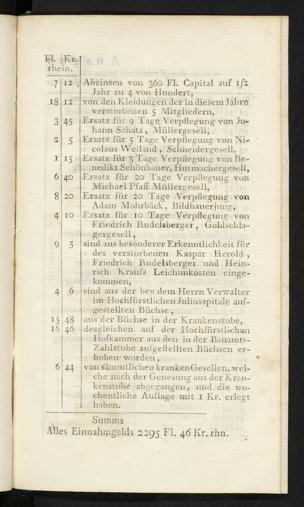 Fl. Kr.
rhein.
7 12 Abzinsen von 360 Fl. Capital auf 1/2
Jahr zu 4 von Hundert,
18 12 von den Kleidungen der in diesem Jahre
verstorbenen 5 Mitgliedern,
3 45 Ersatz für 9 Tage Verpflegung von Jo-
hann Schatz, Müllergesell,
2 5 Ersatz für 5 Tage Verpflegung von Ni-
colaus Weiland, Schneidergesell,
1 15 Ersatz für 3 Tage Verpflegung von Be-
nedikt Schönbauer, Hutmachergesell,
6 40 Ersatz für 20 Tage Verpflegung von
Michael Pfaff Müllergesell,
8 20 Ersatz für 20 Tage Verpflegung von
Adam Mohrbäck, Bildhauerjung,
4 10 Ersatz für 10 Tage Verpflegung von
Friedrich Rudelsberger, Goldschla-
gergesell,
9 5 sind aus besonderer Erkenntlichkeit für
des verstorbenen Kaspar Herold,
Friedrich Rudelsberger und Hein-
rich Kraufs Leichumkosten einge-
kommen,
4 6 sind aus der bey dem Herrn Verwalter
im Hochfürstlichen Juliusspitale auf-
gestellten Büchse,
15 48 aus der Büchse in der Krankenstube,
16 46 desgleichen auf der Hochfürstlichen
Hofkammer aus den in der Bauamts-
Zahlstube aufgestellten Büchsen er-
hoben worden,
6 44 von sämmtlichen kranken Gesellen, wel-
che nach der Genesung aus der Kran-
kenstube abgegangen, und die wö-
chentliche Auflage mit 1 Kr. erlegt
haben.
Summa
Alles Einnahmgelds 2295 Fl. 46 Kr. rhn.